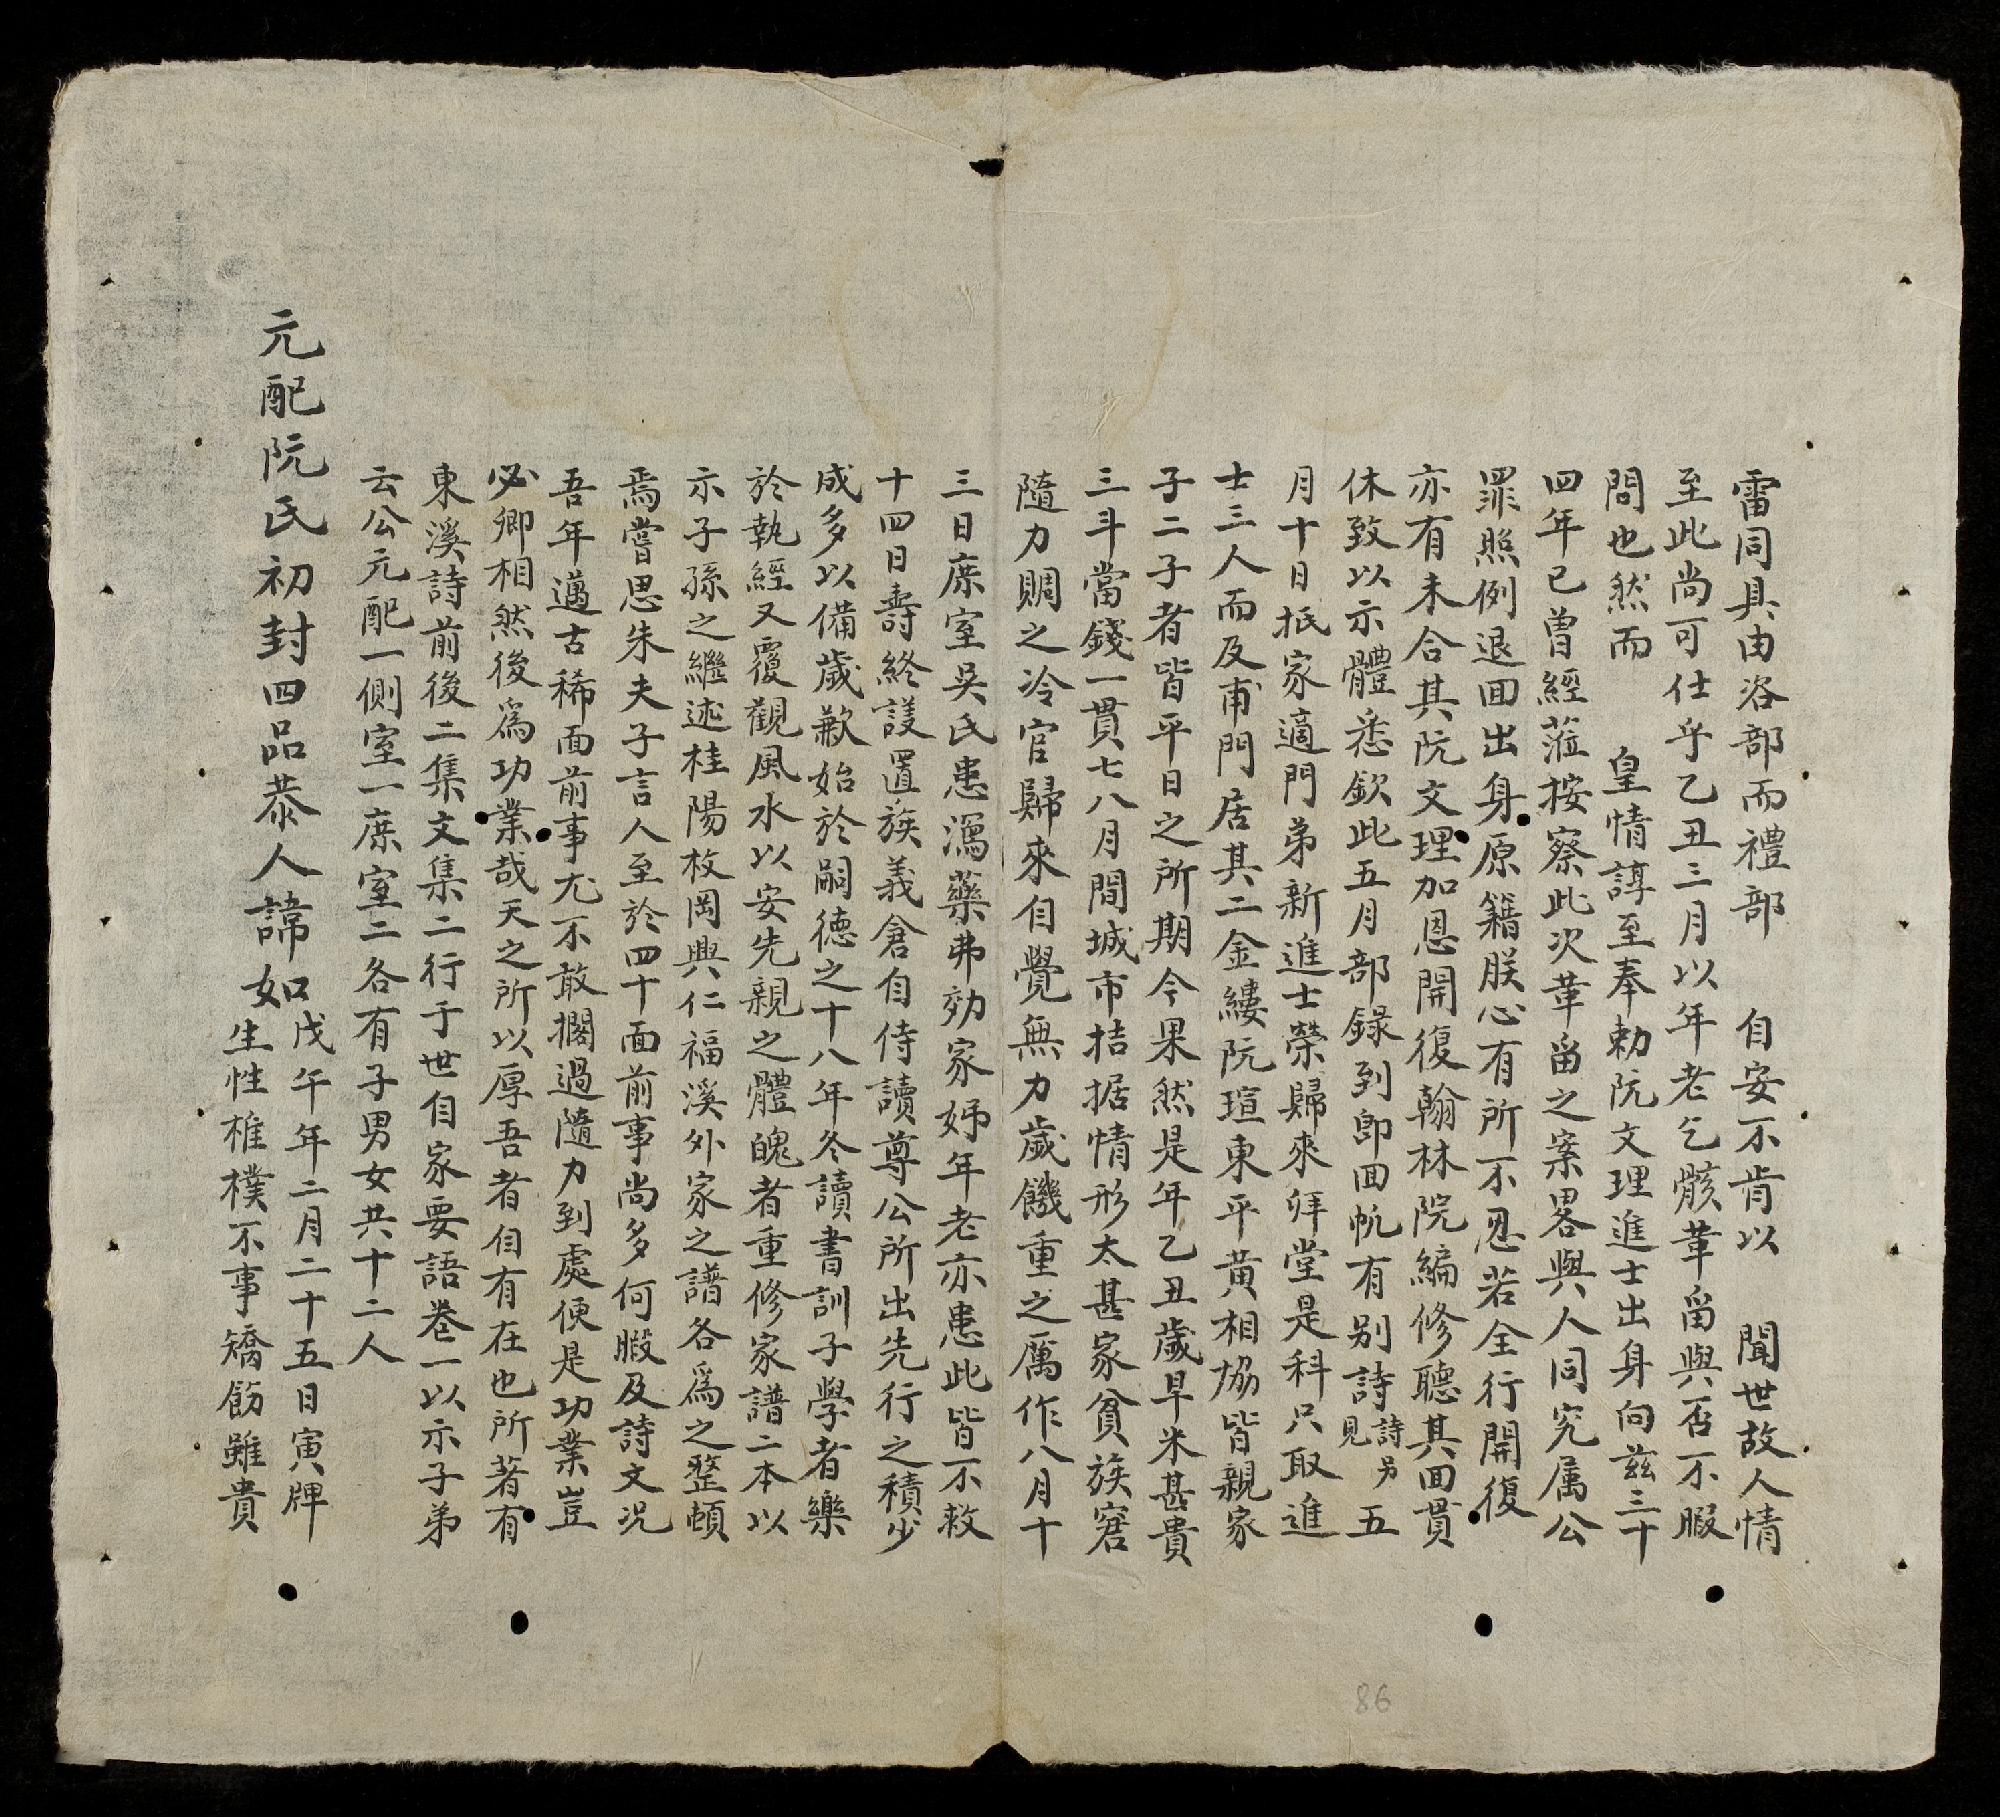 雷同具由咨部而禮部 自安不肯以 聞世故人情
至此尚可仕乎乙丑三月以年老乞骸葷畱與否不暇
問也然而 皇情諄至奉勅阮文理進士出身向茲三十
四年已曾經蒞按察此次葷畱之案畧與人同究属公
罪照例退囬出身原籍朕心有所不忍若全行開復
亦有未合其阮文理加恩開復翰林院編修聽其囬貫
休致以示體悉欽此五月部録到即囬帆有别詩詩另見五
月十日抵家適門弟新進士榮歸來拜堂是科只取進
士三人而及甫門居其二金縷阮瑄東平黄相協皆親家
子二子者皆平日之所期今果然是年乙丑歲早米甚貴
三斗當錢一貫七八月間城市拮据情形太甚家貧族窘
隨力賙之冷官歸來自覺無力歲饑重之厲作八月十
三日庶室吳氏患瀉藥弗効家姊年老亦患此皆不救
十四日壽終設置族義倉自侍讀尊公所出先行之積少
成多以備歲歉始於嗣德之十八年冬讀書訓子學者樂
於執經又覆觀風水以安先親之體魄者重修家譜二本以
示子孫之繼述桂陽枚岡興仁福溪外家之譜各爲之整頓
焉嘗思朱夫子言人至於四十面前事尚多何暇及詩文况
吾年邁古稀面前事尤不敢擱過隨力到處便是功業豈
必卿相然後爲功業哉天之所以厚吾者自有在也所著有
東溪詩前後二集文集二行于世自家要語卷一以示子弟
云公元配一側室一庶室二各有子男女共十二人
元配阮氏初封四品恭人諱如戊午年二月二十五日寅牌
生性椎樸不事矯餝雖貴
86